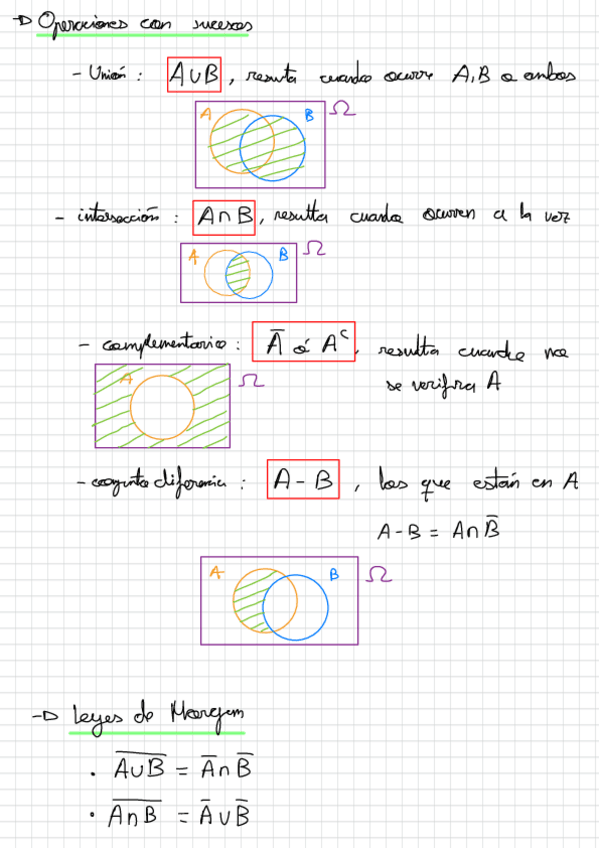 → Operaciones con sucesos
- Unión : A∪B , resulta cuando ocurre A, B o ambos
A B Ω
- intersección : A∩B , resulta cuando ocurren a la vez
A B Ω
- complementario : Ā ó Aᶜ , resulta cuando no
se verifica A
A Ω
- conjunto diferencia : A - B , los que están en A
A-B = A∩B̅
A B Ω
→ Leyes de Morgam
• A̅∪̅B̅ = A̅∩B̅
• A̅∩̅B̅ = A̅∪B̅